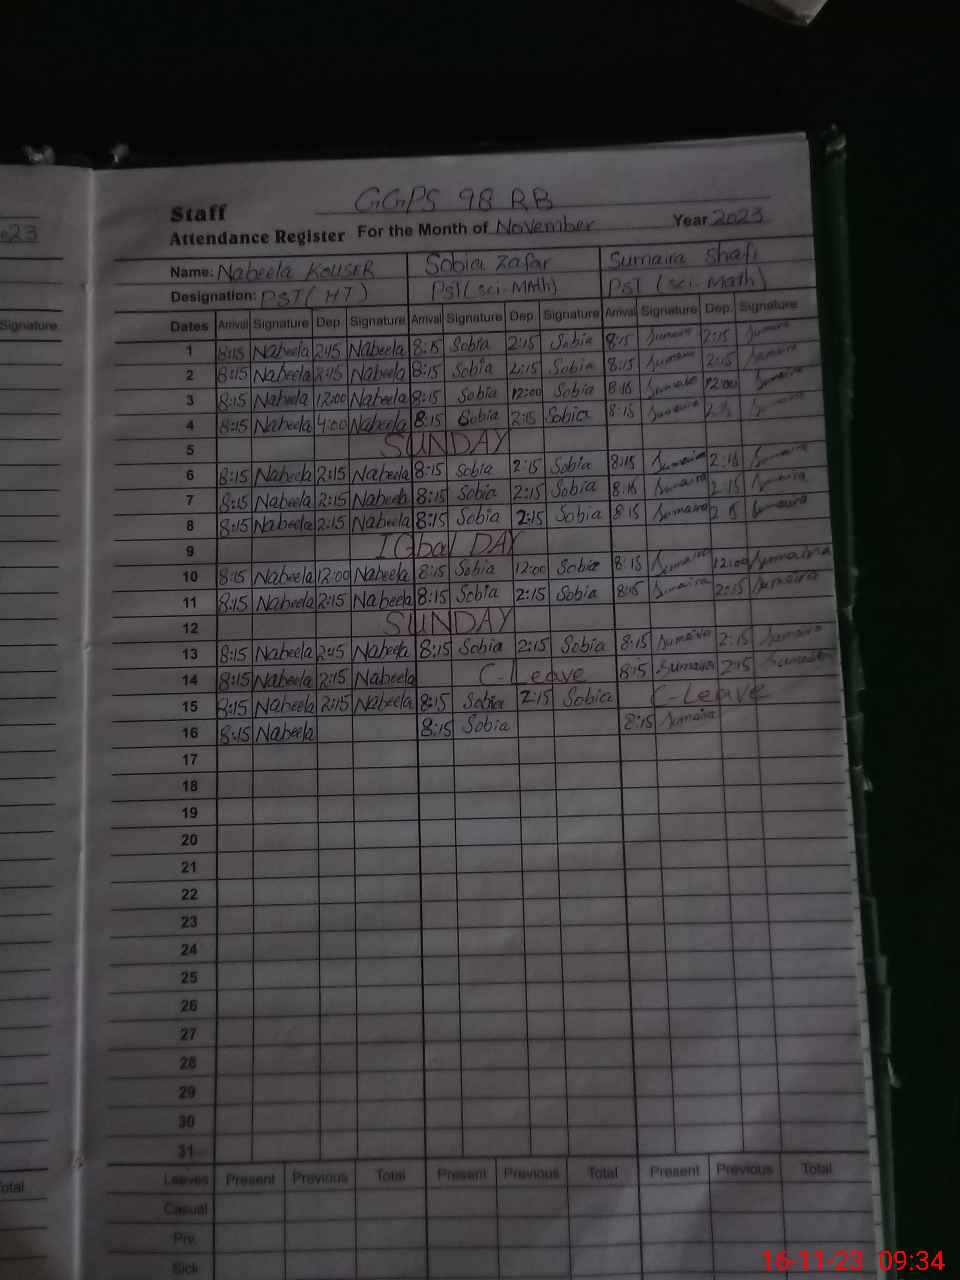 GGPS 98 RB
Staff
Attendance Register For the Month of November Year 2023
023
Name: Nabeela Kousar Sobia Zafar Sumaira Shafi
Designation: PST (HT) PST (Sci-Math) PST (Sci-Math)
Signature
Dates Arrival Signature Dep. Signature Arrival Signature Dep. Signature Arrival Signature Dep. Signature
1 8:15 Nabeela 2:15 Nabeela 8:15 Sobia 2:15 Sobia 8:15 Sumaira 2:15 Sumaira
2 8:15 Nabeela 2:15 Nabeela 8:15 Sobia 2:15 Sobia 8:15 Sumaira 2:15 Sumaira
3 8:15 Nabeela 12:00 Nabeela 8:15 Sobia 12:00 Sobia 8:15 Sumaira 12:00 Sumaira
4 8:15 Nabeela 4:00 Nabeela 8:15 Sobia 2:15 Sobia 8:15 Sumaira 2:15 Sumaira
5 SUNDAY
6 8:15 Nabeela 2:15 Nabeela 8:15 Sobia 2:15 Sobia 8:15 Sumaira 2:15 Sumaira
7 8:15 Nabeela 2:15 Nabeela 8:15 Sobia 2:15 Sobia 8:15 Sumaira 2:15 Sumaira
8 8:15 Nabeela 2:15 Nabeela 8:15 Sobia 2:15 Sobia 8:15 Sumaira 2:15 Sumaira
9 IQbal DAY
10 8:15 Nabeela 12:00 Nabeela 8:15 Sobia 12:00 Sobia 8:15 Sumaira 12:00 Sumaira
11 8:15 Nabeela 2:15 Nabeela 8:15 Sobia 2:15 Sobia 8:15 Sumaira 2:15 Sumaira
12 SUNDAY
13 8:15 Nabeela 2:15 Nabeela 8:15 Sobia 2:15 Sobia 8:15 Sumaira 2:15 Sumaira
14 8:15 Nabeela 2:15 Nabeela C-Leave 8:15 Sumaira 2:15 Sumaira
15 8:15 Nabeela 2:15 Nabeela 8:15 Sobia 2:15 Sobia C-Leave
16 8:15 Nabeela 8:15 Sobia 8:15 Sumaira
17
18
19
20
21
22
23
24
25
26
27
28
29
30
31
Leaves Present Previous Total Present Previous Total Present Previous Total
otal
Casual
Prv.
Sick
16-11-23 09:34